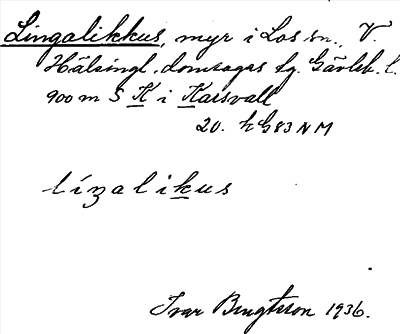 Lingalikkus, myr i Los sn., V.
Hälsingl. domsagas tg. Gävleb. l.
900 m S K i Karsvall
20. h G 83 N M
lízalikus
Ivar Bengtsson 1936.